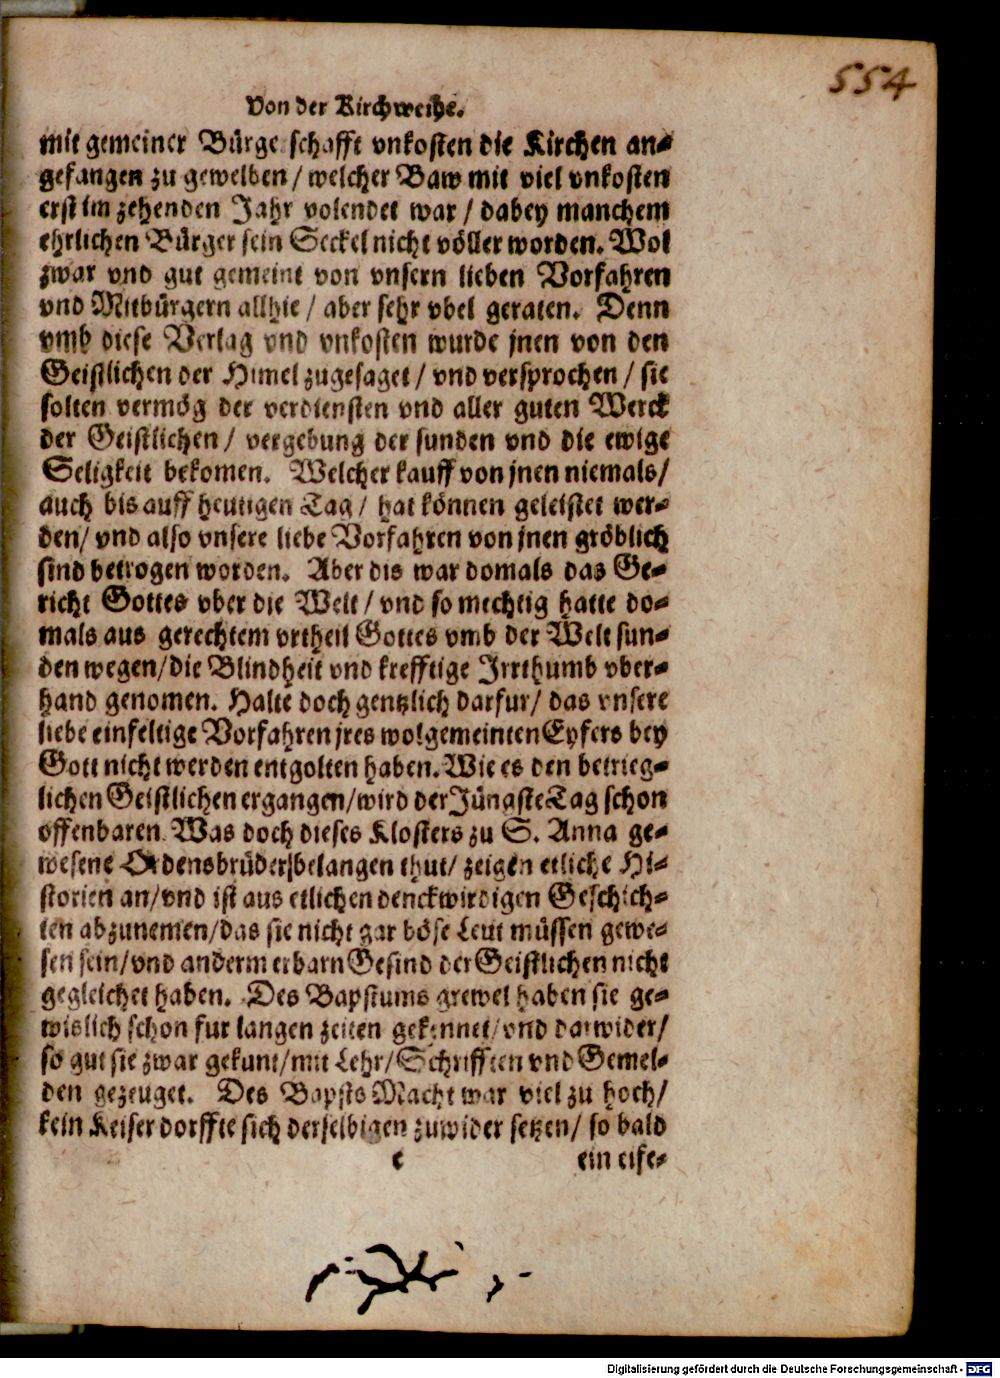 554
Von der Kirchweihe.
mit gemeiner Bürgerschafft vnkosten die Kirchen an-
gefangen zu gewelben / welcher Baw mit viel vnkosten
erst im zehenden Jahr volendet war / dabey manchem
ehrlichen Bürger sein Seckel nicht völler worden. Wol
zwar vnd gut gemeint von vnsern lieben Vorfahren
vnd Mitbürgern allhie / aber sehr vbel geraten. Denn
vmb diese Verlag vnd vnkosten wurde jnen von den
Geistlichen der Himel zugesaget / vnd versprochen / sie
solten vermög der verdiensten vnd aller guten Werck
der Geistlichen / vergebung der sunden vnd die ewige
Seligkeit bekomen. Welcher kauff von jnen niemals /
auch bis auff heutigen Tag / hat können geleistet wer-
den / vnd also vnsere liebe Vorfahren von jnen gröblich
sind betrogen worden. Aber dis war domals das Ge-
richt Gottes vber die Welt / vnd so mechtig hatte do-
mals aus gerechtem vrtheil Gottes vmb der Welt sun-
den wegen / die Blindheit vnd krefftige Irrthumb vber-
hand genomen. Halte doch gentzlich darfur / das vnsere
liebe einfeltige Vorfahren jres wolgemeinten Eyfers bey
Gott nicht werden entgolten haben. Wie es den betrieg-
lichen Geistlichen ergangen / wird der Jüngste Tag schon
offenbaren. Was doch dieses Klosters zu S. Anna ge-
wesene Ordensbrüder belangen thut / zeigen etliche Hi-
storien an / vnd ist aus etlichen denckwirdigen Geschich-
ten abzunemen / das sie nicht gar böse Leut müssen gewe-
sen sein / vnd anderm erbarn Gesind der Geistlichen nicht
gegleichet haben. Des Bapstums grewel haben sie ge-
wislich schon fur langen zeiten gekennet / vnd darwider /
so gut sie zwar gekunt / mit Lehr / Schrifften vnd Gemel-
den gezeuget. Des Bapsts Macht war viel zu hoch /
kein Keiser dorffte sich derselbigen zuwider setzen / so bald
e ein eife-
Digitalisierung gefördert durch die Deutsche Forschungsgemeinschaft - DFG